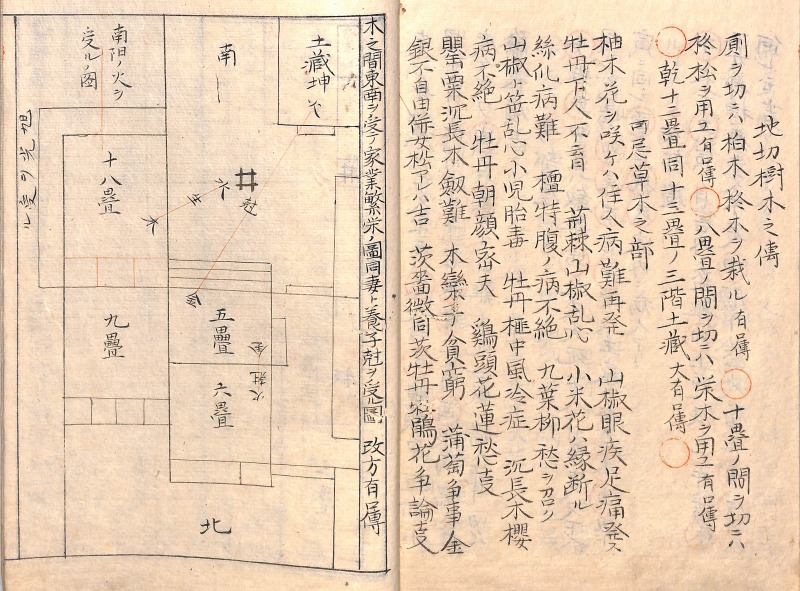 地切樹木之傳
厠ヲ切ニハ柏木柊木ヲ栽ル有口傳 十疊ノ間ヲ切ニハ
柊松ヲ用ユ有口傳 八疊ノ間ヲ切ニハ栄木ヲ用ユ有口傳
乾十二疊同十三疊ノ三階土藏大有口傳
可忌草木之部
柚木花ヲ咲ケハ住人病難再発 山椒眼疾足痛発ス
牡丹下人不育 荊棘山椒乱心 小米花ハ縁断ル
絲化病難 檀特腹ノ病不絶 九葉柳愁ヲ招ク
山椒小笹乱心小児胎毒 牡丹榧中風冷症 沉長木櫻
病不絶 牡丹朝顔密夫 鶏頭花蓮愁㐂
罌粟沉長木劔難 木欒子貧窮 蒲萄争事ノ金
銀不自由併女松アレハ吉 茨薔薇同茨牡丹 鵑花争論㐂
木之間東南ヲ受テ家業繁栄ノ圖同妻ト養子尅ヲ受ル圖 改方有口傳
土藏坤
南
南阳ノ火ヲ
受ルノ圖
旭光ヲ受ル
十八疊
井
木
九疊
五疊
金
六疊
火尅金
北